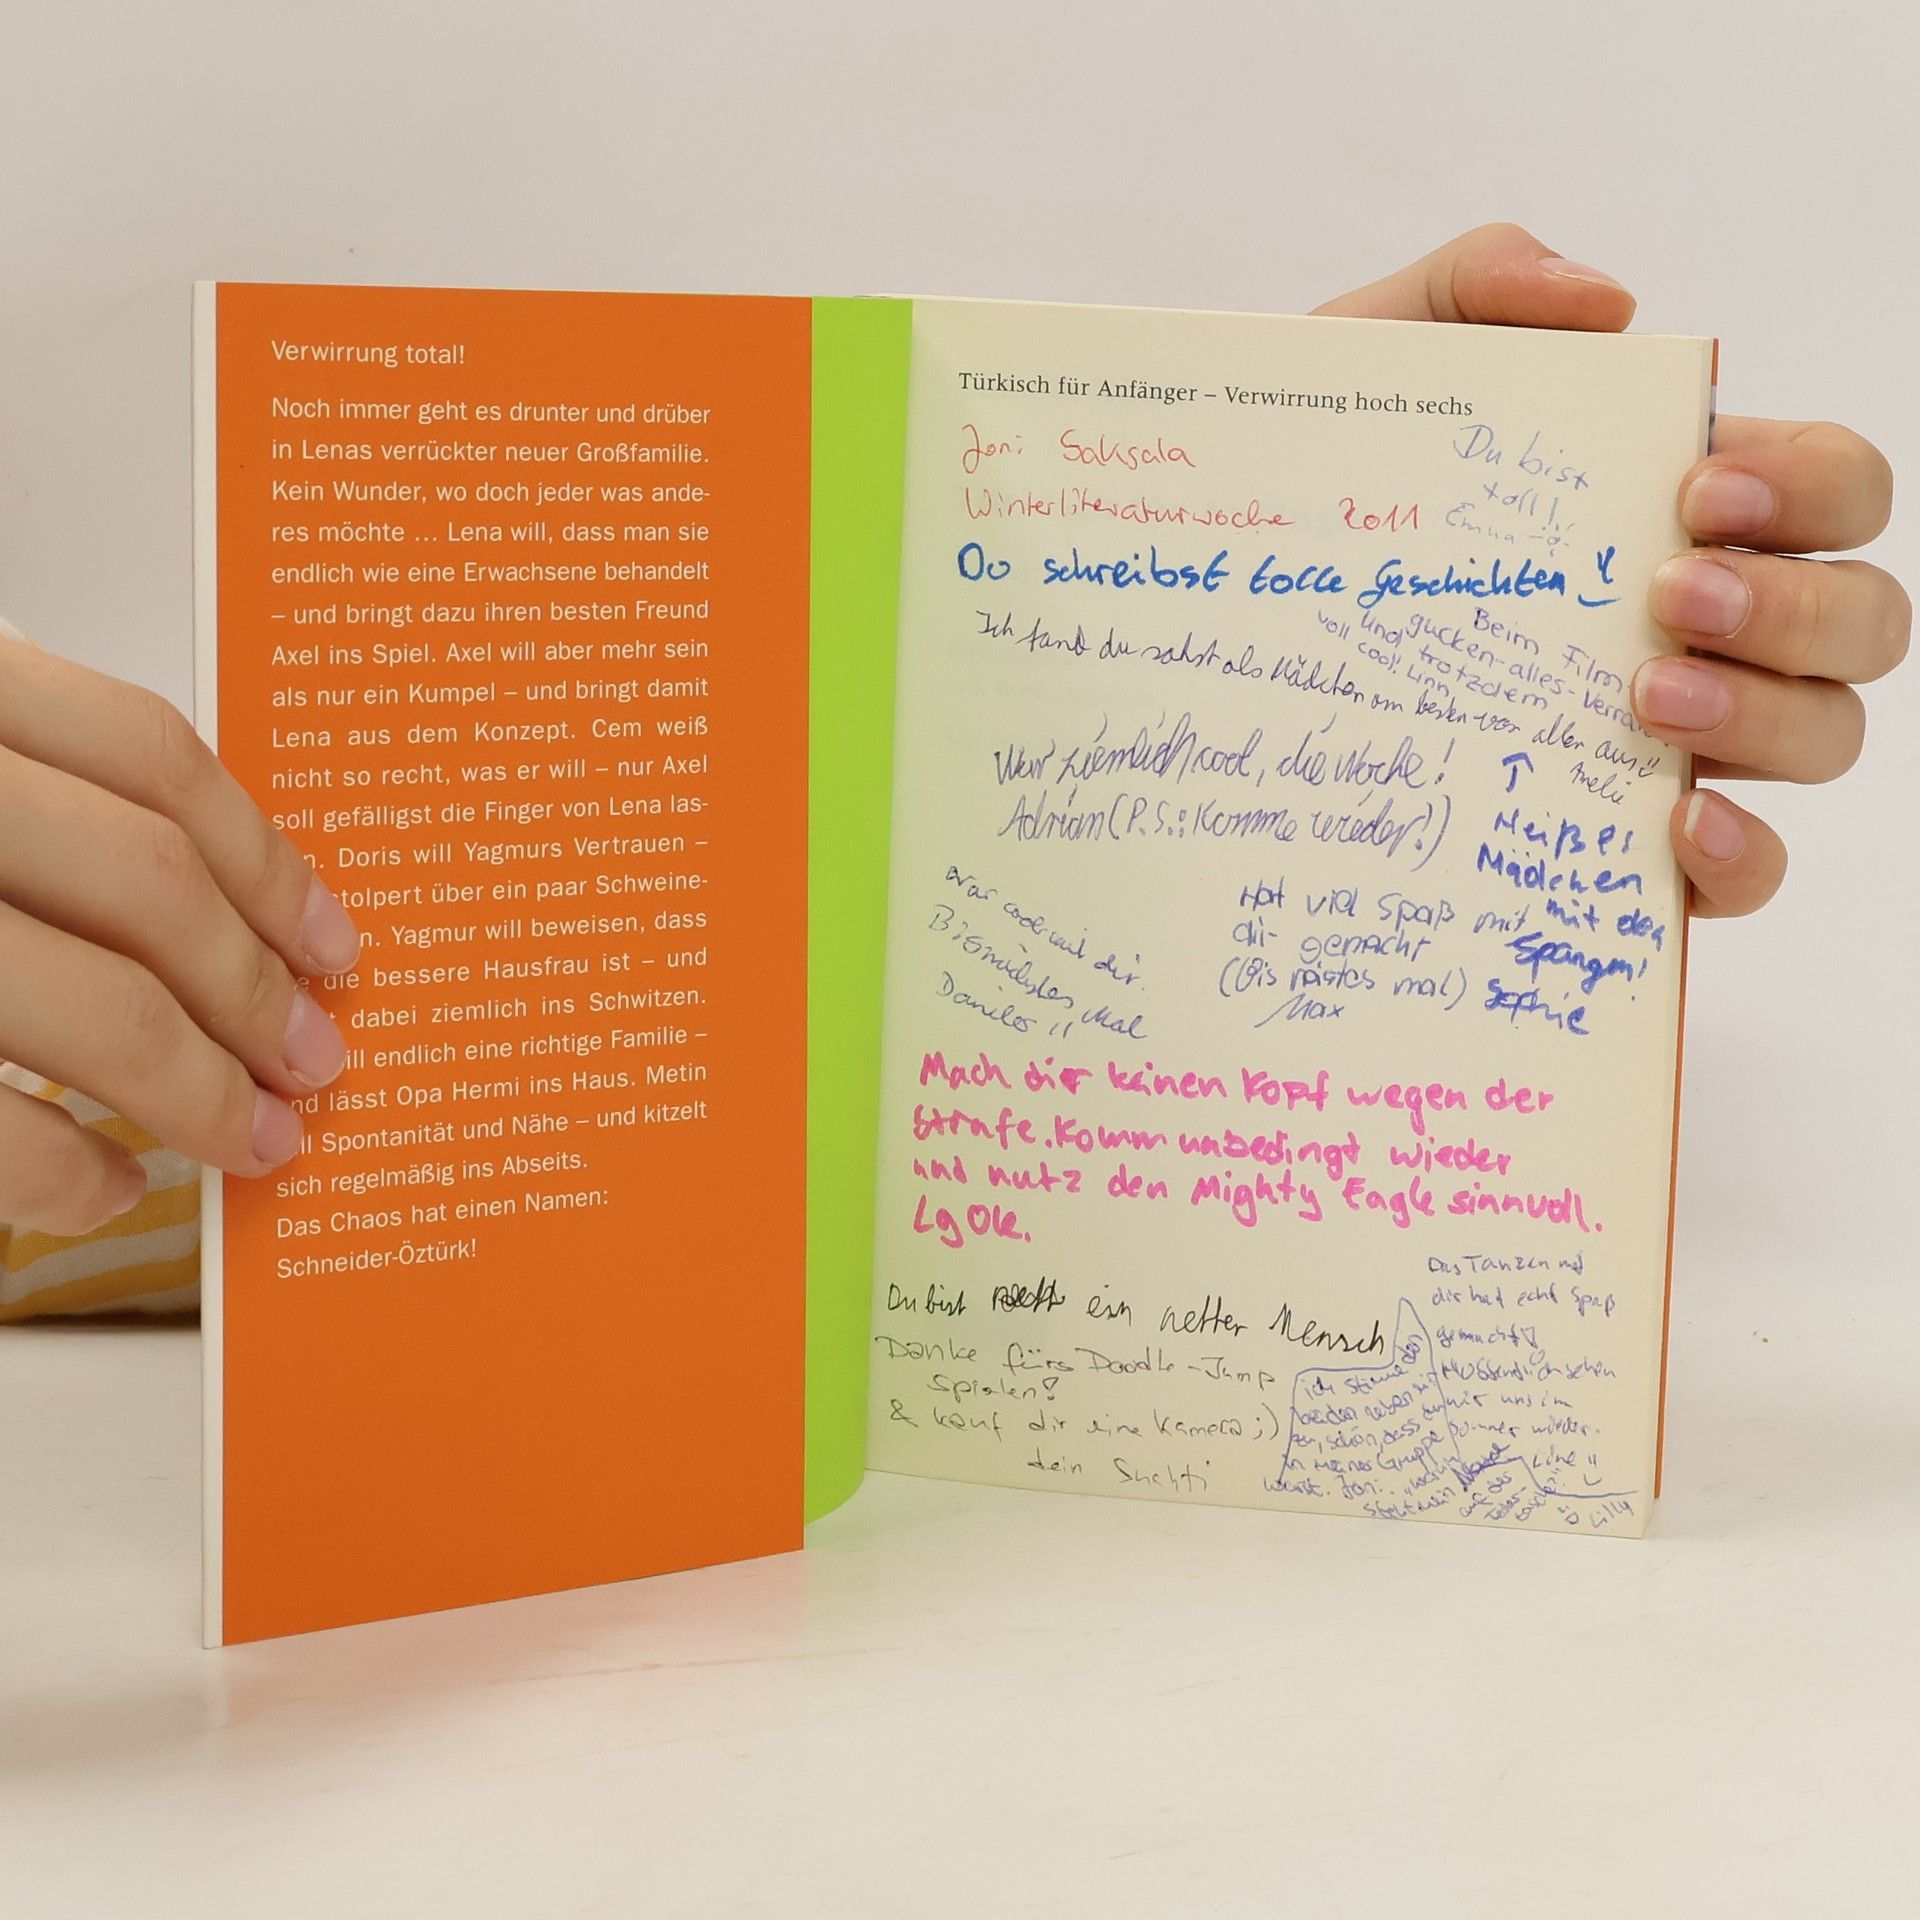 Verwirrung total!
Noch immer geht es drunter und drüber
in Lenas verrückter neuer Großfamilie.
Kein Wunder, wo doch jeder was ande-
res möchte ... Lena will, dass man sie
endlich wie eine Erwachsene behandelt
– und bringt dazu ihren besten Freund
Axel ins Spiel. Axel will aber mehr sein
als nur ein Kumpel – und bringt damit
Lena aus dem Konzept. Cem weiß
nicht so recht, was er will – nur Axel
soll gefälligst die Finger von Lena las-
n. Doris will Yagmurs Vertrauen –
stolpert über ein paar Schweine-
n. Yagmur will beweisen, dass
die bessere Hausfrau ist – und
dabei ziemlich ins Schwitzen.
will endlich eine richtige Familie –
nd lässt Opa Hermi ins Haus. Metin
ll Spontanität und Nähe – und kitzelt
sich regelmäßig ins Abseits.
Das Chaos hat einen Namen:
Schneider-Öztürk!
Türkisch für Anfänger – Verwirrung hoch sechs
Joni Saksala
Winterliteraturwoche 2011
Du bist
toll!
Emma
Du schreibst tolle Geschichten
Beim Film-
gucken-alles-Verra
und trotzdem
voll cool! Linn
Ich fand du sahst als Mädchen am besten von allen aus
Amelie
War ziemlich cool, die Woche!
Adrian (P.S.: Komme wieder!)
↑
Heißes
Mädchen
mit den
Spangen!
Sophie
War cool mit dir.
Bis nächstes Mal
Danilo
Hat viel Spaß mit
dir gemacht
(Bis nästes mal)
Max
Mach dir keinen Kopf wegen der
Strafe. Komm unbedingt wieder
und nutz den Mighty Eagle sinnvoll.
Lg Ole.
Du bist ein netter Mensch
Danke fürs Doodle-Jump
spielen!
& kauf dir eine Kamera ;)
dein Shahti
Das Tanzen mit
dir hat echt Spaß
gemacht
sehen
wir uns im
Sommer wieder.
Line
ich stimme den
beiden neben mir
zu, schön, dass du
in meiner Gruppe
warst. Joni:
steht mein
auf der
Lilly